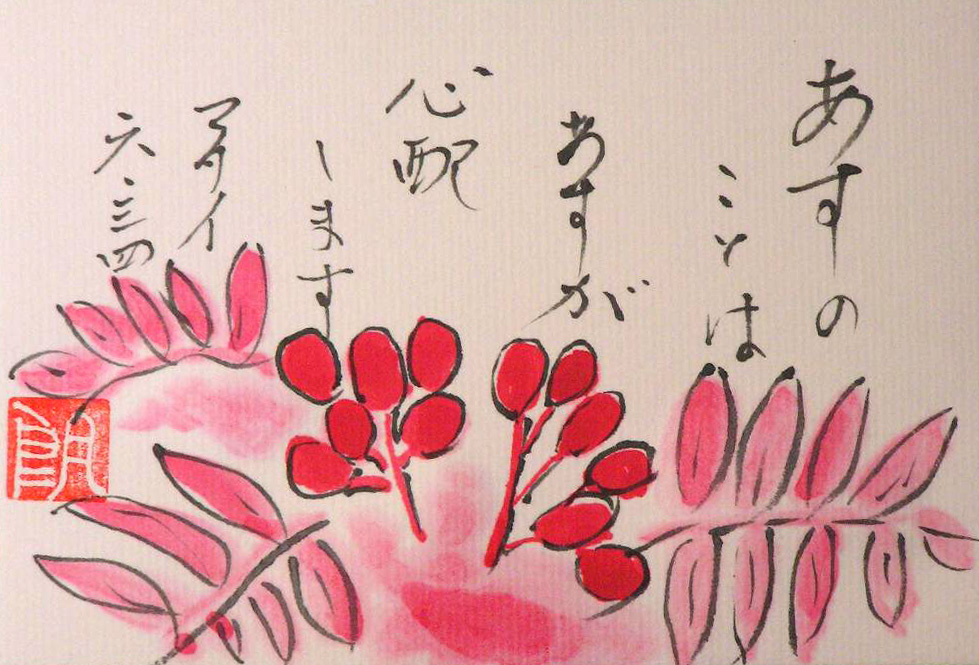 あすの
ことは
あすが
心配
します
マタイ
六・三四
朗